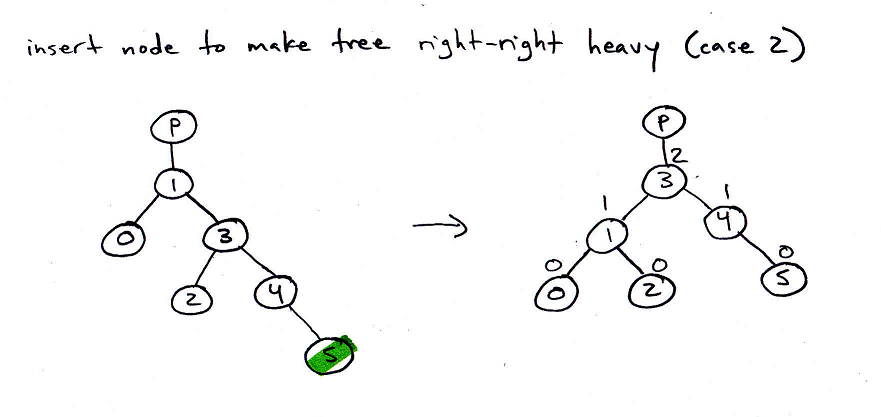 insert node to make tree right-right heavy (case 2)
P
1
0
3
2
4
5
→
P
2
3
1
1
1
4
0
0
0
0
2
5